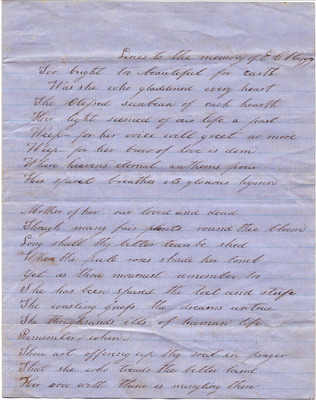 Lines to the memory of E C
Too bright too beautiful for earth
Was she who gladdened every heart
The blessed sunbeam of each hearth
Her light seemed of our life a part
Weep for her voice will greet no more
Weep for her brow of love is dim
Where heavens eternal anthems pour
Her spirit breathes its glorious hymn
Mother of her our loved and dead
Though many fair plants round thee bloom
Long shall thy bitter tears be shed
When the pale roses shade her tomb
Yet as thou mournest remember too
She has been spared the toil and strife
The wasting griefs the dreams untrue
The thoughsands ills of human life
Remember, when
Thou art offering up thy soul in prayer
That she who treads the better land
Her own with thine is mingling there